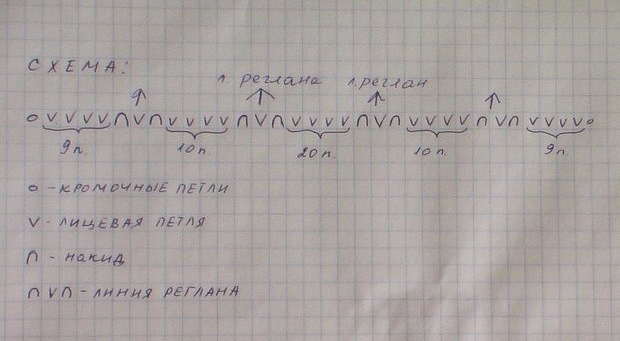 СХЕМА:
л. реглана л.реглан
o v v v v ∩ v ∩ v v v v ∩ v ∩ v v v v ∩ v ∩ v v v v ∩ v ∩ v v v v o
9п. 10п. 20п. 10п. 9п.
o - КРОМОЧНЫЕ ПЕТЛИ
v - ЛИЦЕВАЯ ПЕТЛЯ
∩ - НАКИД
∩ v ∩ - ЛИНИЯ РЕГЛАНА